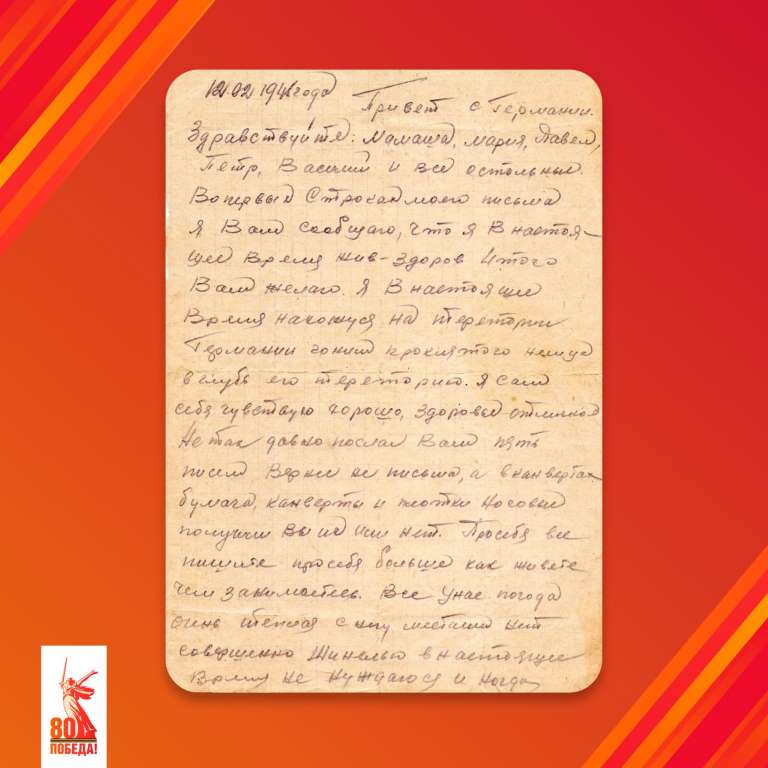 12.02 1945 года
Привет с Германии.
Здравствуйте: Мамаша, Мария, Павел,
Пётр, Василий и все остольные.
Вопервых Строках моего письма
я Вам сообщаю, что я в настоя-
щее время жив-здоров и того
Вам желаю. Я в настоящее
время нахожуся на теретории
Германии гоним проклятого немца
вглубь его тереторию. Я сам
себя чувствую горошо, здоровье отличное
Не так давно послал Вам пять
писем Верние не письма, а в канвертах
бумага, канверты и платки носовые
получили Вы их или нет. Просебя все
пишите просебя больше как живете
чем занимаетесь. Все Унас погода
очень теплая снегу местами нет
совершенно Шинелью в настоящее
Время не нуждаюся и когда
80
ПОБЕДА!